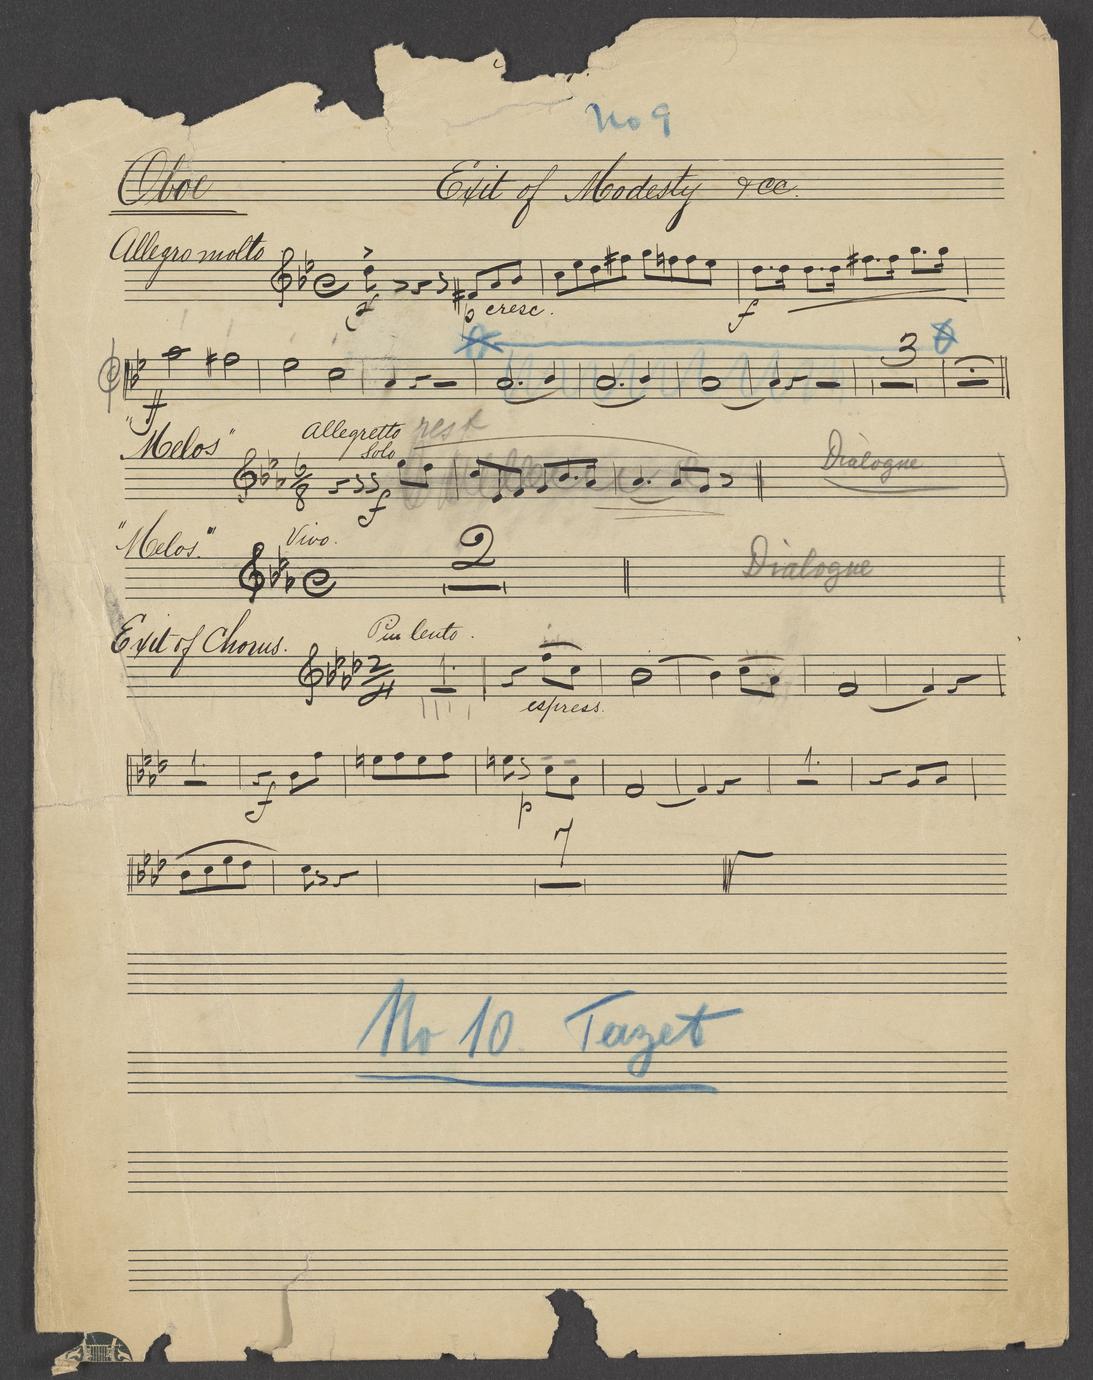 No 9
Oboe Exit of Modesty &cc.
Allegro molto
p cresc. f
3
ff
"Melos" Allegretto rest
Solo Dialogue
f
"Melos." Vivo. 2 Dialogue
Exit of Chorus. Piu lento.
2/4 1.
espress.
1. 1.
f p
7
No 10. Tazet